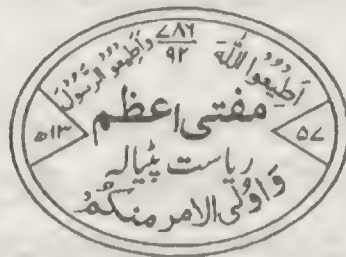 ۷۸۶
۹۲
اَطِیعُوا اللّٰهَ وَاَطِیعُوا الرَّسُوْلَ
مفتی اعظم
۵۷ ۱۳ھ
ریاست پٹیالہ
وَاُولِی الامر منکُمْ